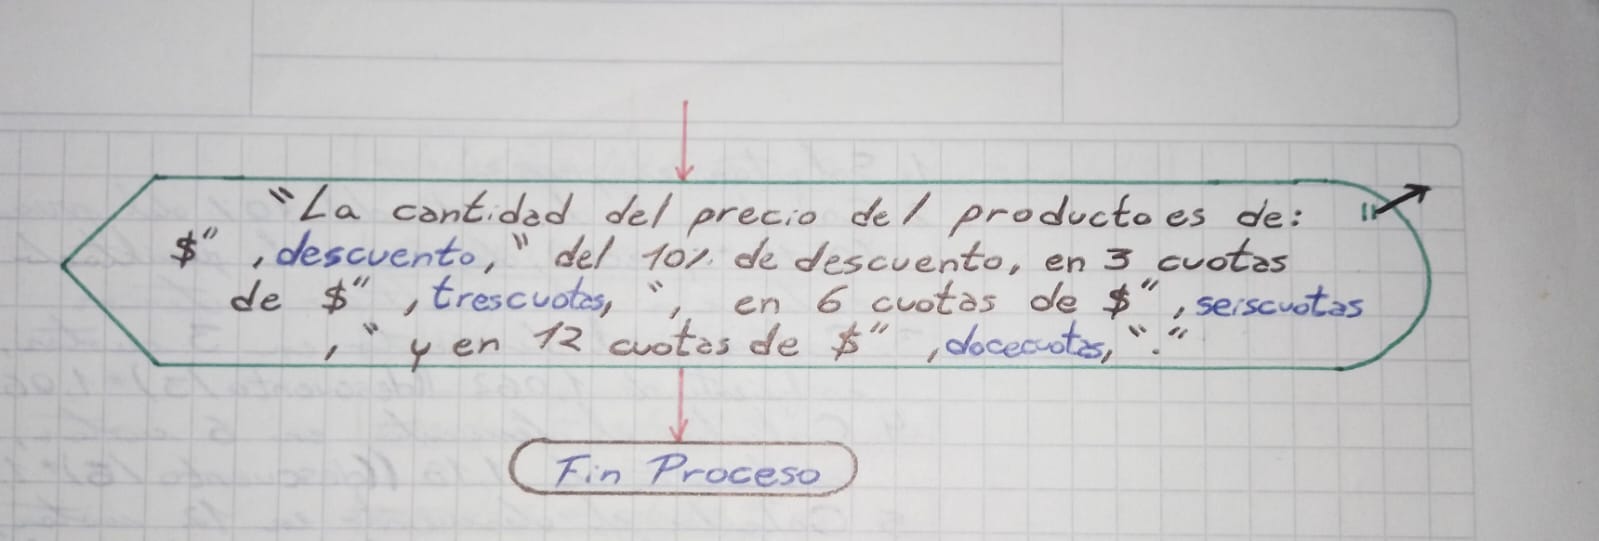 "La cantidad del precio del producto es de:
$", descuento, " del 10% de descuento, en 3 cuotas
de $", trescuotas, ", en 6 cuotas de $", seiscuotas
, " y en 12 cuotas de $", docecuotas, "."
Fin Proceso